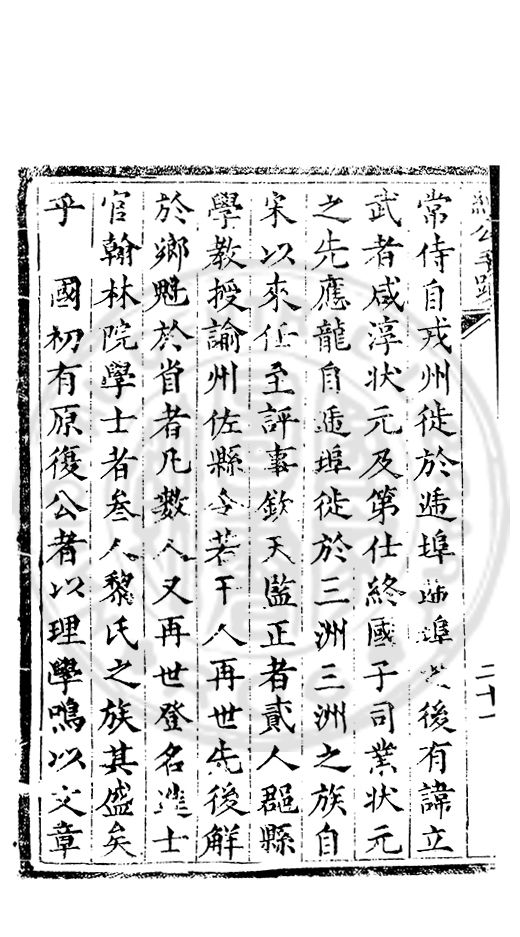 公手
二十一
常侍自戎州徙於遞埠遞埠之後有諱立
武者咸淳狀元及第仕終國子司業狀元
之先應龍自遞埠徙於三洲三洲之族自
宋以來仕至評事欽天監正者貳人郡縣
學教授諭州佐縣令若干人再世先後解
於鄉魁於省者凡數人又再世登名進士
官翰林院學士者叁人黎氏之族其盛矣
乎 國初有原復公者以理學鳴以文章